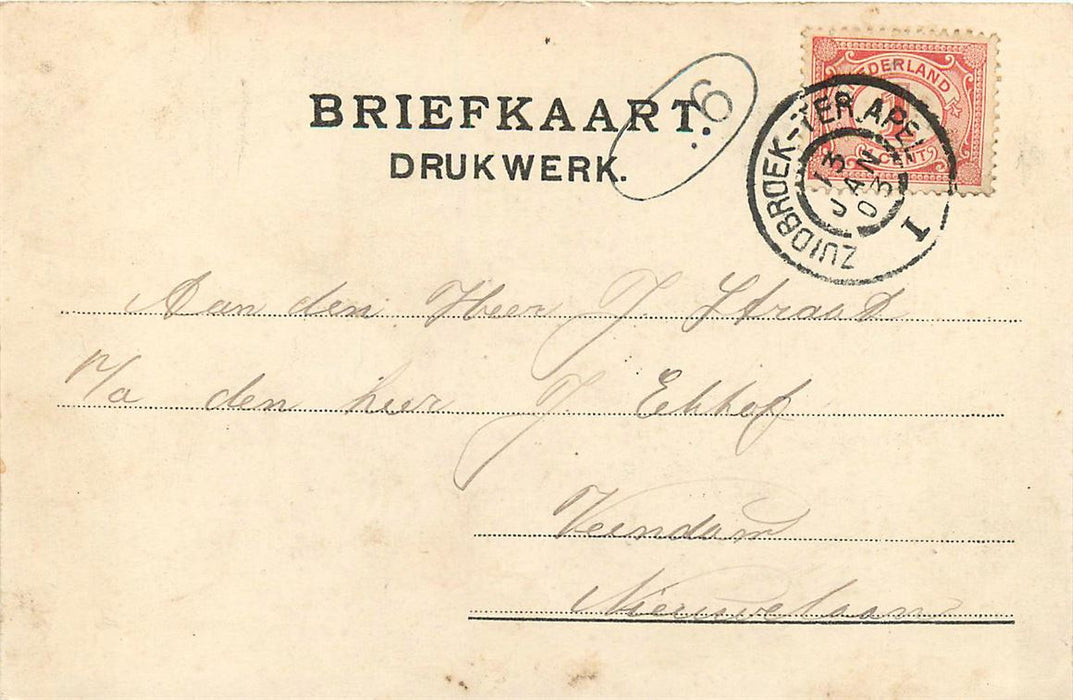 BRIEFKAART.
DRUKWERK.
6
NEDERLAND
1
CENT
ZUIDBROEK-TER APEL
13
JAN
03
I
Aan den Heer J. Straat
p/a den heer J. Ekhof
Veendam
Nieuwelaan